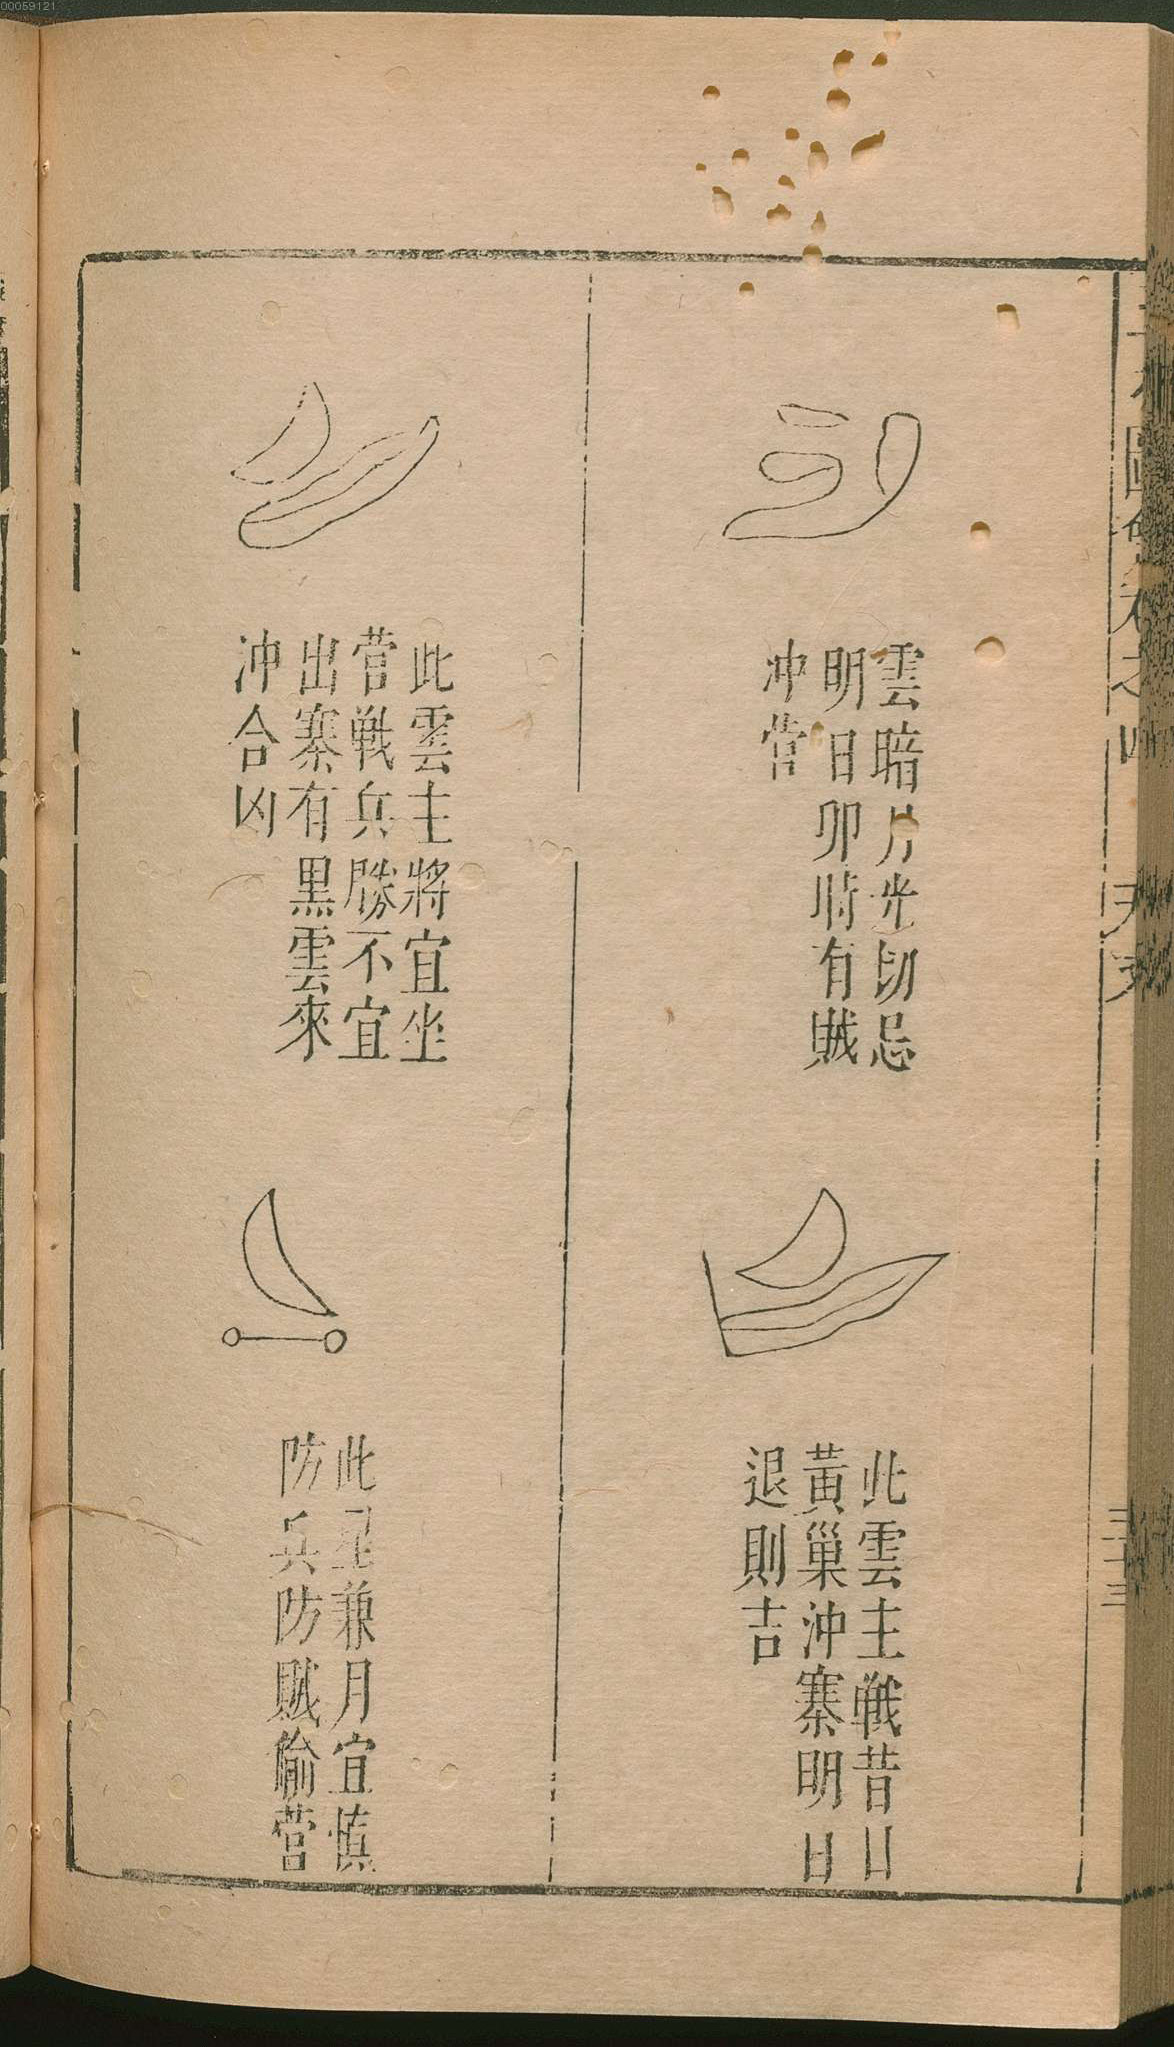 00059121
雲暗月光切忌
明日卯時有賊
冲營
此雲主戰昔日
黃巢沖寨明日
退則吉
此雲主將宜坐
營戰兵勝不宜
出寨有黑雲來
沖合凶
此星兼月宜慎
防兵防賊偷營
圖會
卷之四
天文
三十三